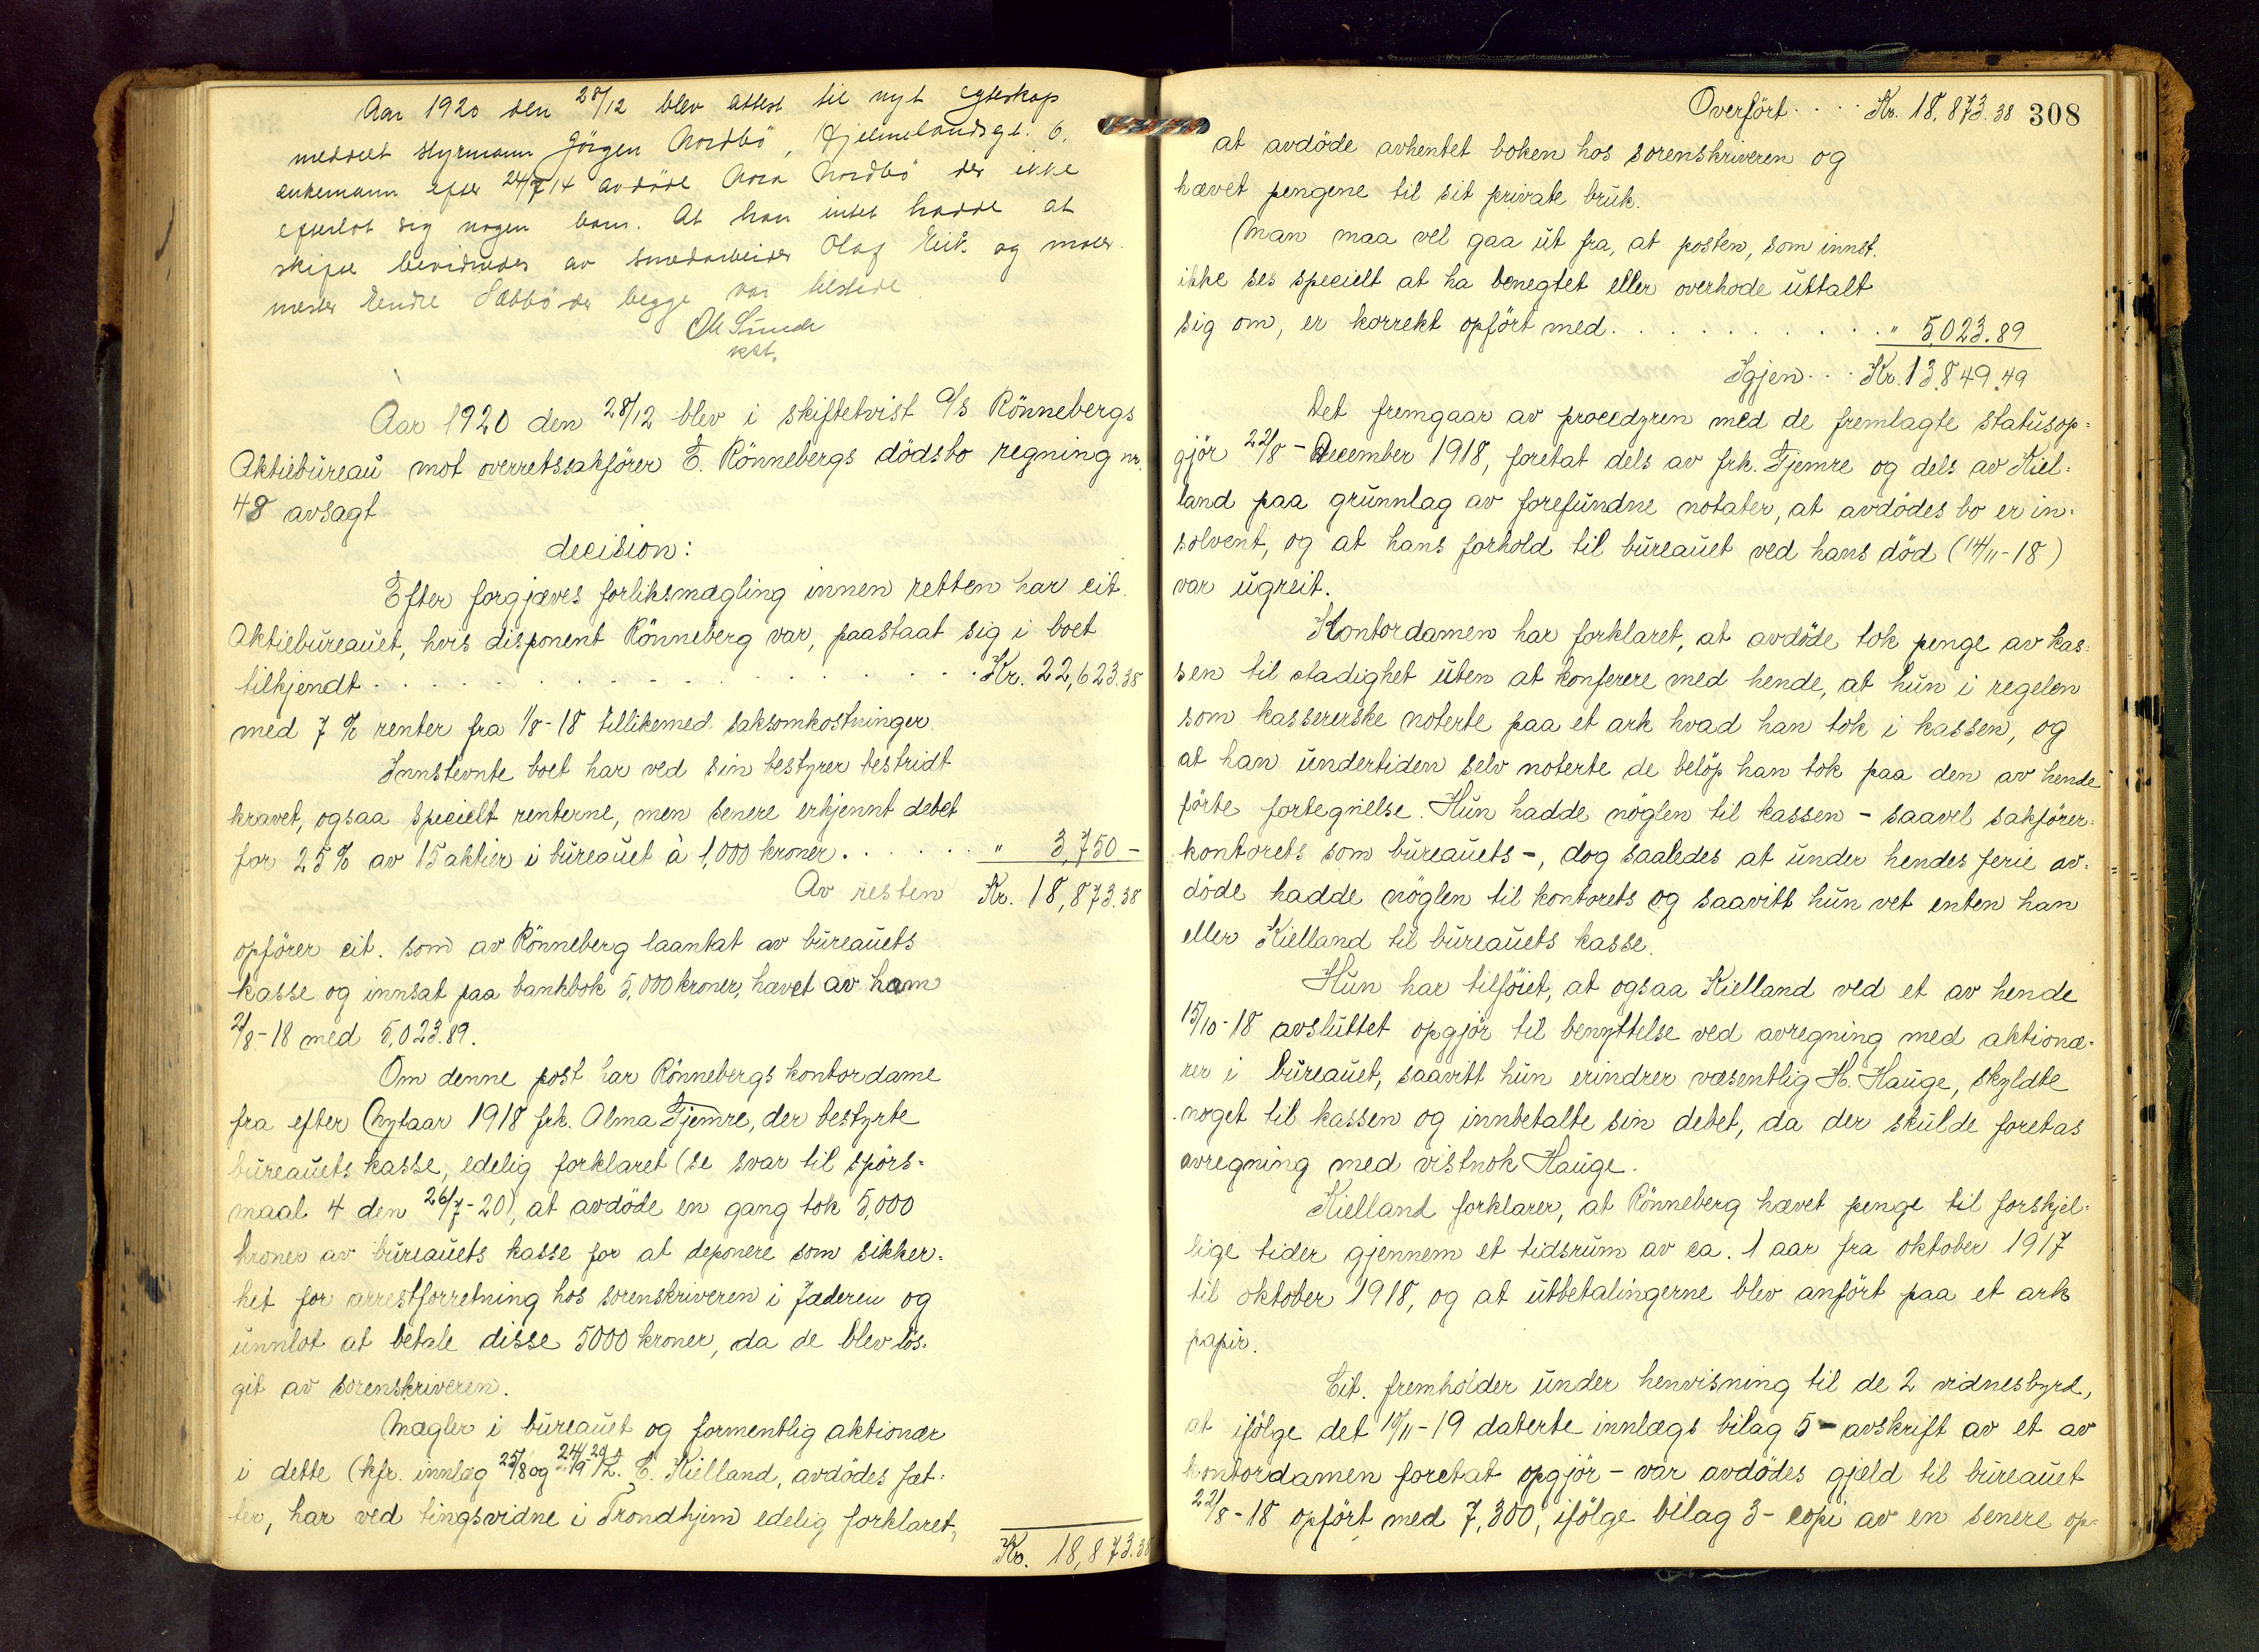 Aar 1920 den 28/12 blev attest til nyt egteskap
meddelt styrmann Jörgen Nordbö, Hjelmelandsgt. 6,
enkemann efter 24/7 14 avdöde Nora Nordbö der ikke
efterlot sig nogen barn. At han intet hadde at
skifte bevidnedes av smedarbeider Olaf Eik og maler
mester Endre Sæbbö der begge var tilstede
Ole Sunde
kst.
Aar 1920 den 28/12 blev i skiftetvist A/S Rönnebergs
Aktiebureau mot overretssakförer E. Rönnebergs dödsbo regning nr.
48 avsagt
decision:
Efter forgjæves forliksmægling innen retten har cit.
Aktiebureauet, hvis disponent Rönneberg var, paastaat sig i boet
tilkjendt . . . . . . . . . . Kr. 22,623.38
med 7 % renter fra 1/8-18 tillikemed saksomkostninger.
Innstevnte boet har ved sin bestyrer bestridt
kravet, ogsaa specielt renterne, men senere erkjennt debet
for 25 % av 15 aktier i bureauet à 1,000 kroner . . . . . . " 3,750 -
Av resten Kr. 18,873.38
opförer cit. som av Rönneberg laantat av bureauets
kasse og innsat paa bankbok 5,000 kroner, hævet av ham
2/8-18 med 5,023.89.
Om denne post har Rönnebergs kontordame
fra efter Nytaar 1918 frk. Alma Tjemre, der bestyrte
bureauets kasse, edelig forklaret (se svar til spörs-
maal 4 den 26/7-20), at avdöde en gang tok 5,000
kroner av bureauets kasse for at deponere som sikker-
het for arrestforretning hos sorenskriveren i Jæderen og
unnlot at betale disse 5000 kroner, da de blev lös-
git av sorenskriveren.
Mægler i bureauet og formentlig aktionær
i dette (kfr. innlæg 25/8 og 24/9 E. Kielland, avdödes fæt-
ter, har ved tingsvidne i Trondhjem edelig forklaret,
Kr. 18,873.38
Overfört . . . . Kr. 18,873.38 308
at avdöde avhentet boken hos sorenskriveren og
hævet pengene til sit private bruk.
Man maa vel gaa ut fra, at posten, som innst.
ikke ses specielt at ha benegtet eller overhode uttalt
sig om, er korrekt opfört med . . . . . . . . . . " 5,023.89
Igjen . . . Kr. 13,849.49
Det fremgaar av procedyren med de fremlagte statusop-
gjör 22/8 - December 1918, foretat dels av frk. Tjemre og dels av Kiel-
land paa grunnlag av forefundne notater, at avdödes bo er in-
solvent, og at hans forhold til bureauet ved hans död (14/11-18)
var ugreit.
Kontordamen har forklaret, at avdöde tok penge av kas-
sen til stadighet uten at konferere med hende, at hun i regelen
som kassererske noterte paa et ark hvad han tok i kassen, og
at han undertiden selv noterte de belöp han tok paa den av hende
förte fortegnelse. Hun hadde nöglen til kassen - saavel sakförer-
kontorets som bureauets -, dog saaledes at under hendes ferie av-
döde hadde nöglen til kontorets og saavitt hun vet enten han
eller Kielland til bureauets kasse.
Hun har tilföiet, at ogsaa Kielland ved et av hende
15/10-18 avsluttet opgjör til benyttelse ved avregning med aktionæ-
rer i bureauet, saavitt hun erindrer væsentlig H. Hauge, skyldte
noget til kassen og innbetalte sin debet, da der skulde foretas
avregning med vistnok Hauge.
Kielland forklarer, at Rönneberg hævet penge til forskjel-
lige tider gjennem et tidsrum av ca. 1 aar fra oktober 1917
til oktober 1918, og at utbetalingerne blev anfört paa et ark
papir.
Cit. fremholder under henvisning til de 2 vidnesbyrd,
at ifölge det 10/11-19 daterte innlægs bilag 5 - avskrift av et av
kontordamen foretat opgjör - var avdödes gjæld til bureauet
22/8-18 opfört med 7,300, ifölge bilag 3 - copi av en senere op-